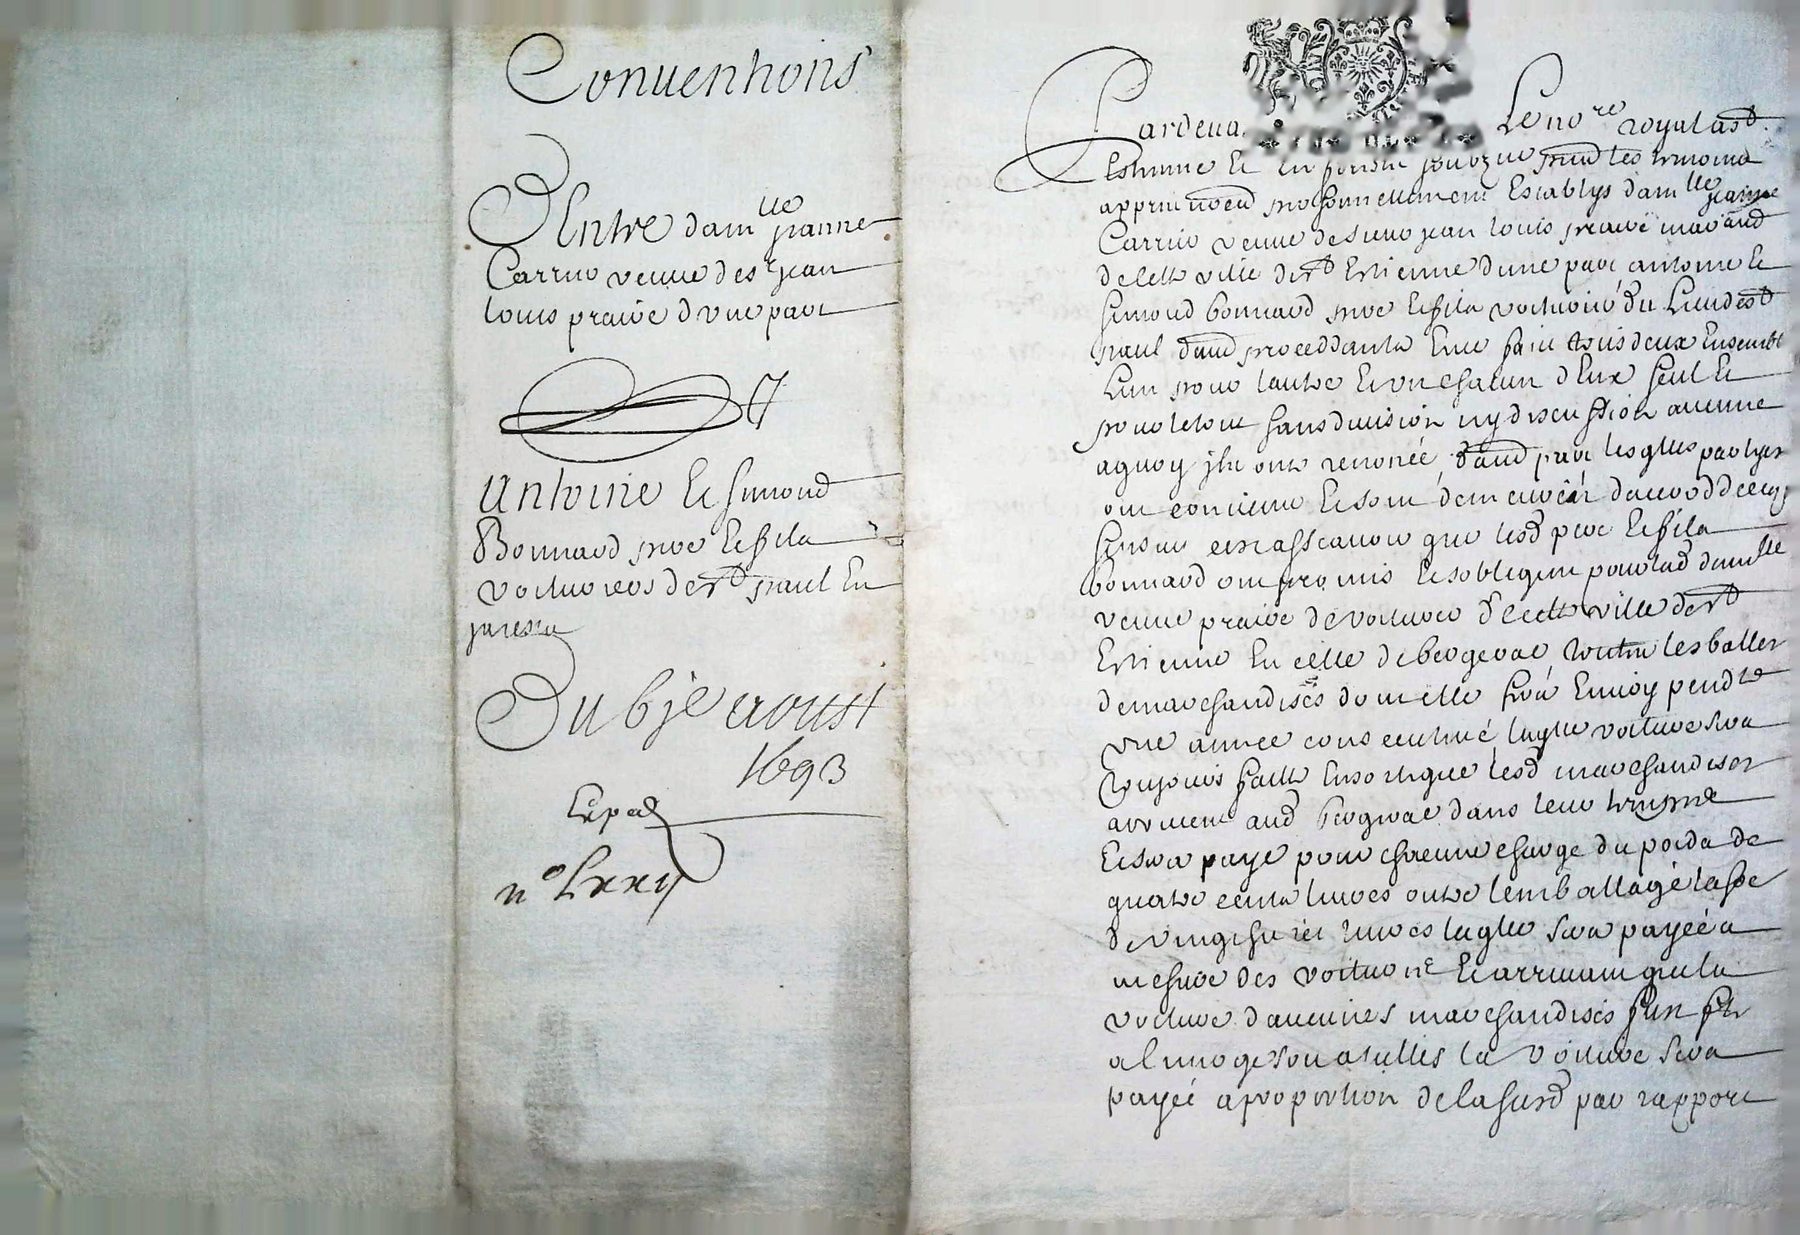 Conuentions
Entre dam lle jeanne
Carrier veuue de sr jean
louis praire d vne part
Antoine et simond
Bonnard pere et fils
voituriers de st paul en
jarestz
Du bje aoust
1693
Exped
n° Lxxij
Pardeua Le no re royal a st
estienne et
apprès només personnellement Establys dam lle jeanne
Carrier veuue de sieur jean louis praire marchand
de cette ville de st Estienne d'une part antoine et
simond bonnard pere et fils voituriers du lieu de st
paul d'aud proceddants
L'un pour l'autre et vn chacun d'Eux seul et
pour le tout sans diuision ny discussion aucune
a quoy ils ont renoncé d'aud part lesqlles partyes
ont conuenu et sont demeurées d'accord de ce qui
sensuit que lesd pere et fils
bonnard ont promis et s'obligent pour lad dam lle
veuue praire de voiturer de cette ville de st
Estienne En celle de bergerac toutes les balles
de marchandises dont elle fera Enuoy pendt
vne année consecutiue laqlle voiture sera
toujours faitte En sorte que lesd marchandises
arriuent aud bergerac dans leur
Et sera payé pour chacune charge du poids de
quatre cents liures outre l'emballage la so e
de vingt huict liures laqlle sera payée a
mesure des voitures Et arriuant que la
voiture d'aucunes marchandises
a limoges ou a tulles la voiture sera
payée a proportion de la susd par rapport